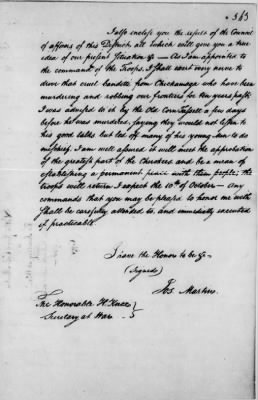 363
I also inclose you the result of the Council
of officers of this District all which will give you a true
idea of our present Situation &c — As I am appointed to
the command of the Troops, I shall exert every nerve to
drive that cruel banditti from Chickamaga who have been
murdering and robbing our frontiers for ten years past,
I was advised to it by the Old Corn Tassell a few days
before he was murdered, saying they would not listen to
his good talks but led off many of his young men to do
mischief. I am well assured it will meet the approbation
of the greatest part of the Cherokees and be a mean of
establishing a permanent peace with them people; the
troops will return I expect the 10th of October — Any
commands that you may be pleased to honor me with
Shall be carefully attended to, and immediately executed
if practicable.
I have the Honor to be &c
(Signed)
Jos. Martin
The Honorable H. Knox
Secretary at War